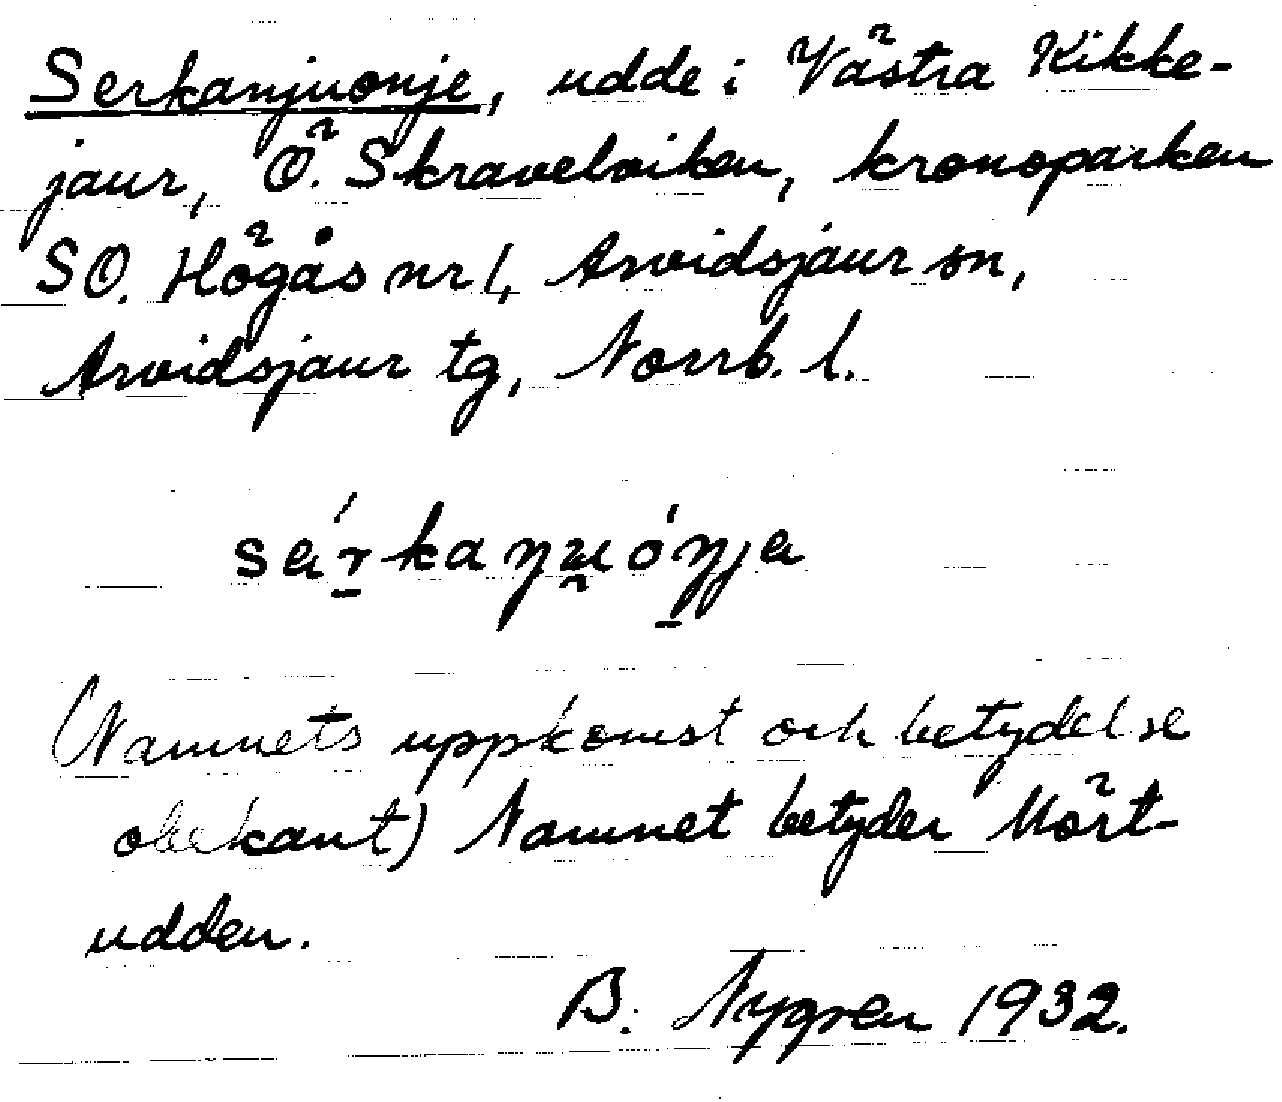 Serkanjuonje, udde i Västra Kikke-
jaur, Ö. Skravelviken, kronoparken
SO. Högås nr 1, Arvidsjaur sn,
Arvidsjaur tg, Norrb. l.
(Namnets uppkomst och betydelse
obekant) Namnet betyder Mört-
udden.
B. Nygren 1932.